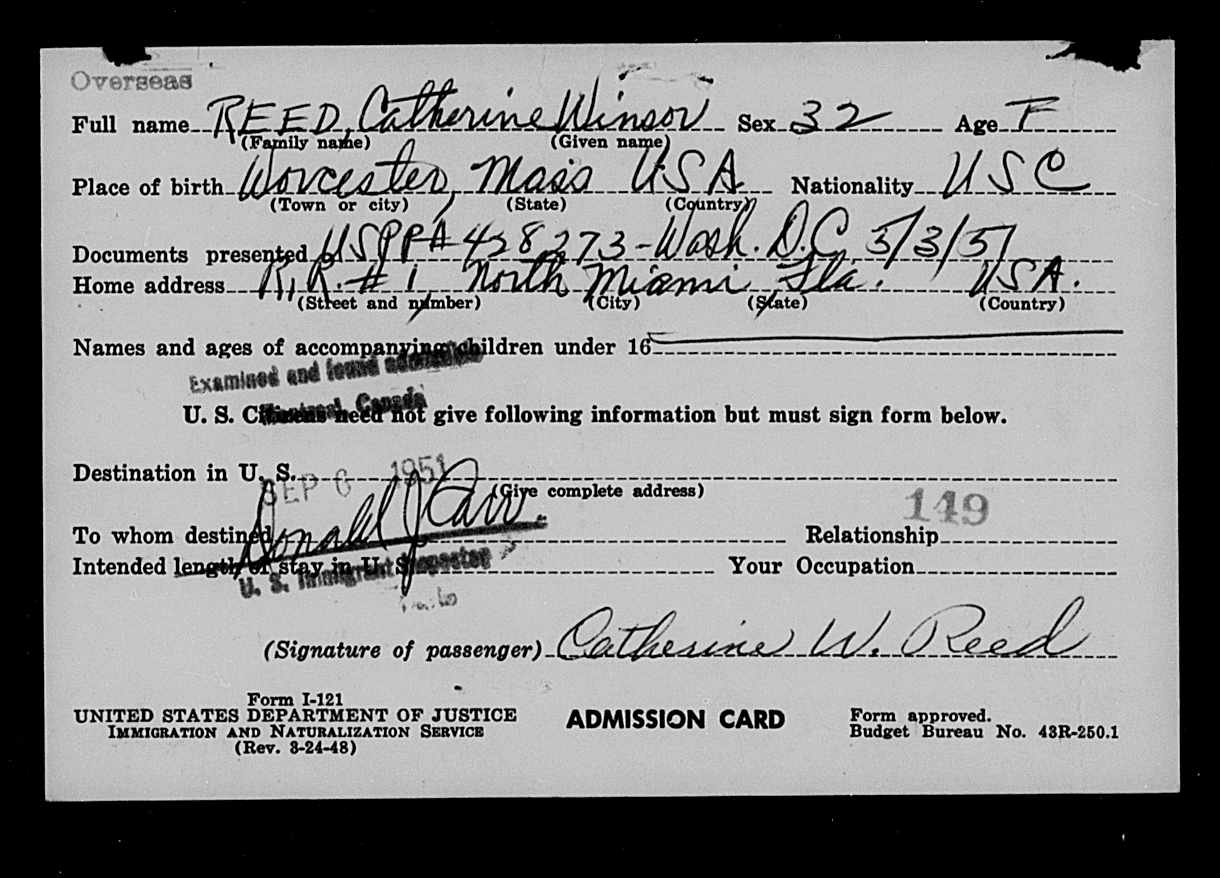 Overseas
Full name REED, Catherine Winsor Sex 32 Age F
(Family name) (Given name)
Place of birth Worcester, Mass USA Nationality USC
(Town or city) (State) (Country)
Documents presented USPP# 428273-Wash. D.C. 5/3/51
Home address R.R. #1, North Miami, Fla. USA.
(Street and number) (City) (State) (Country)
Names and ages of accompanying children under 16
Examined and found
U. S. Citizens need not give following information but must sign form below.
Montreal, Canada
Destination in U. S.
SEP 6 1951
(Give complete address)
149
To whom destined Relationship
Donald J Carr
Intended length of stay in U. S. Your Occupation
U. S. Immigrant Inspector
(Signature of passenger) Catherine W. Reed
Form I-121
UNITED STATES DEPARTMENT OF JUSTICE
IMMIGRATION AND NATURALIZATION SERVICE
(Rev. 3-24-48)
ADMISSION CARD
Form approved.
Budget Bureau No. 43R-250.1